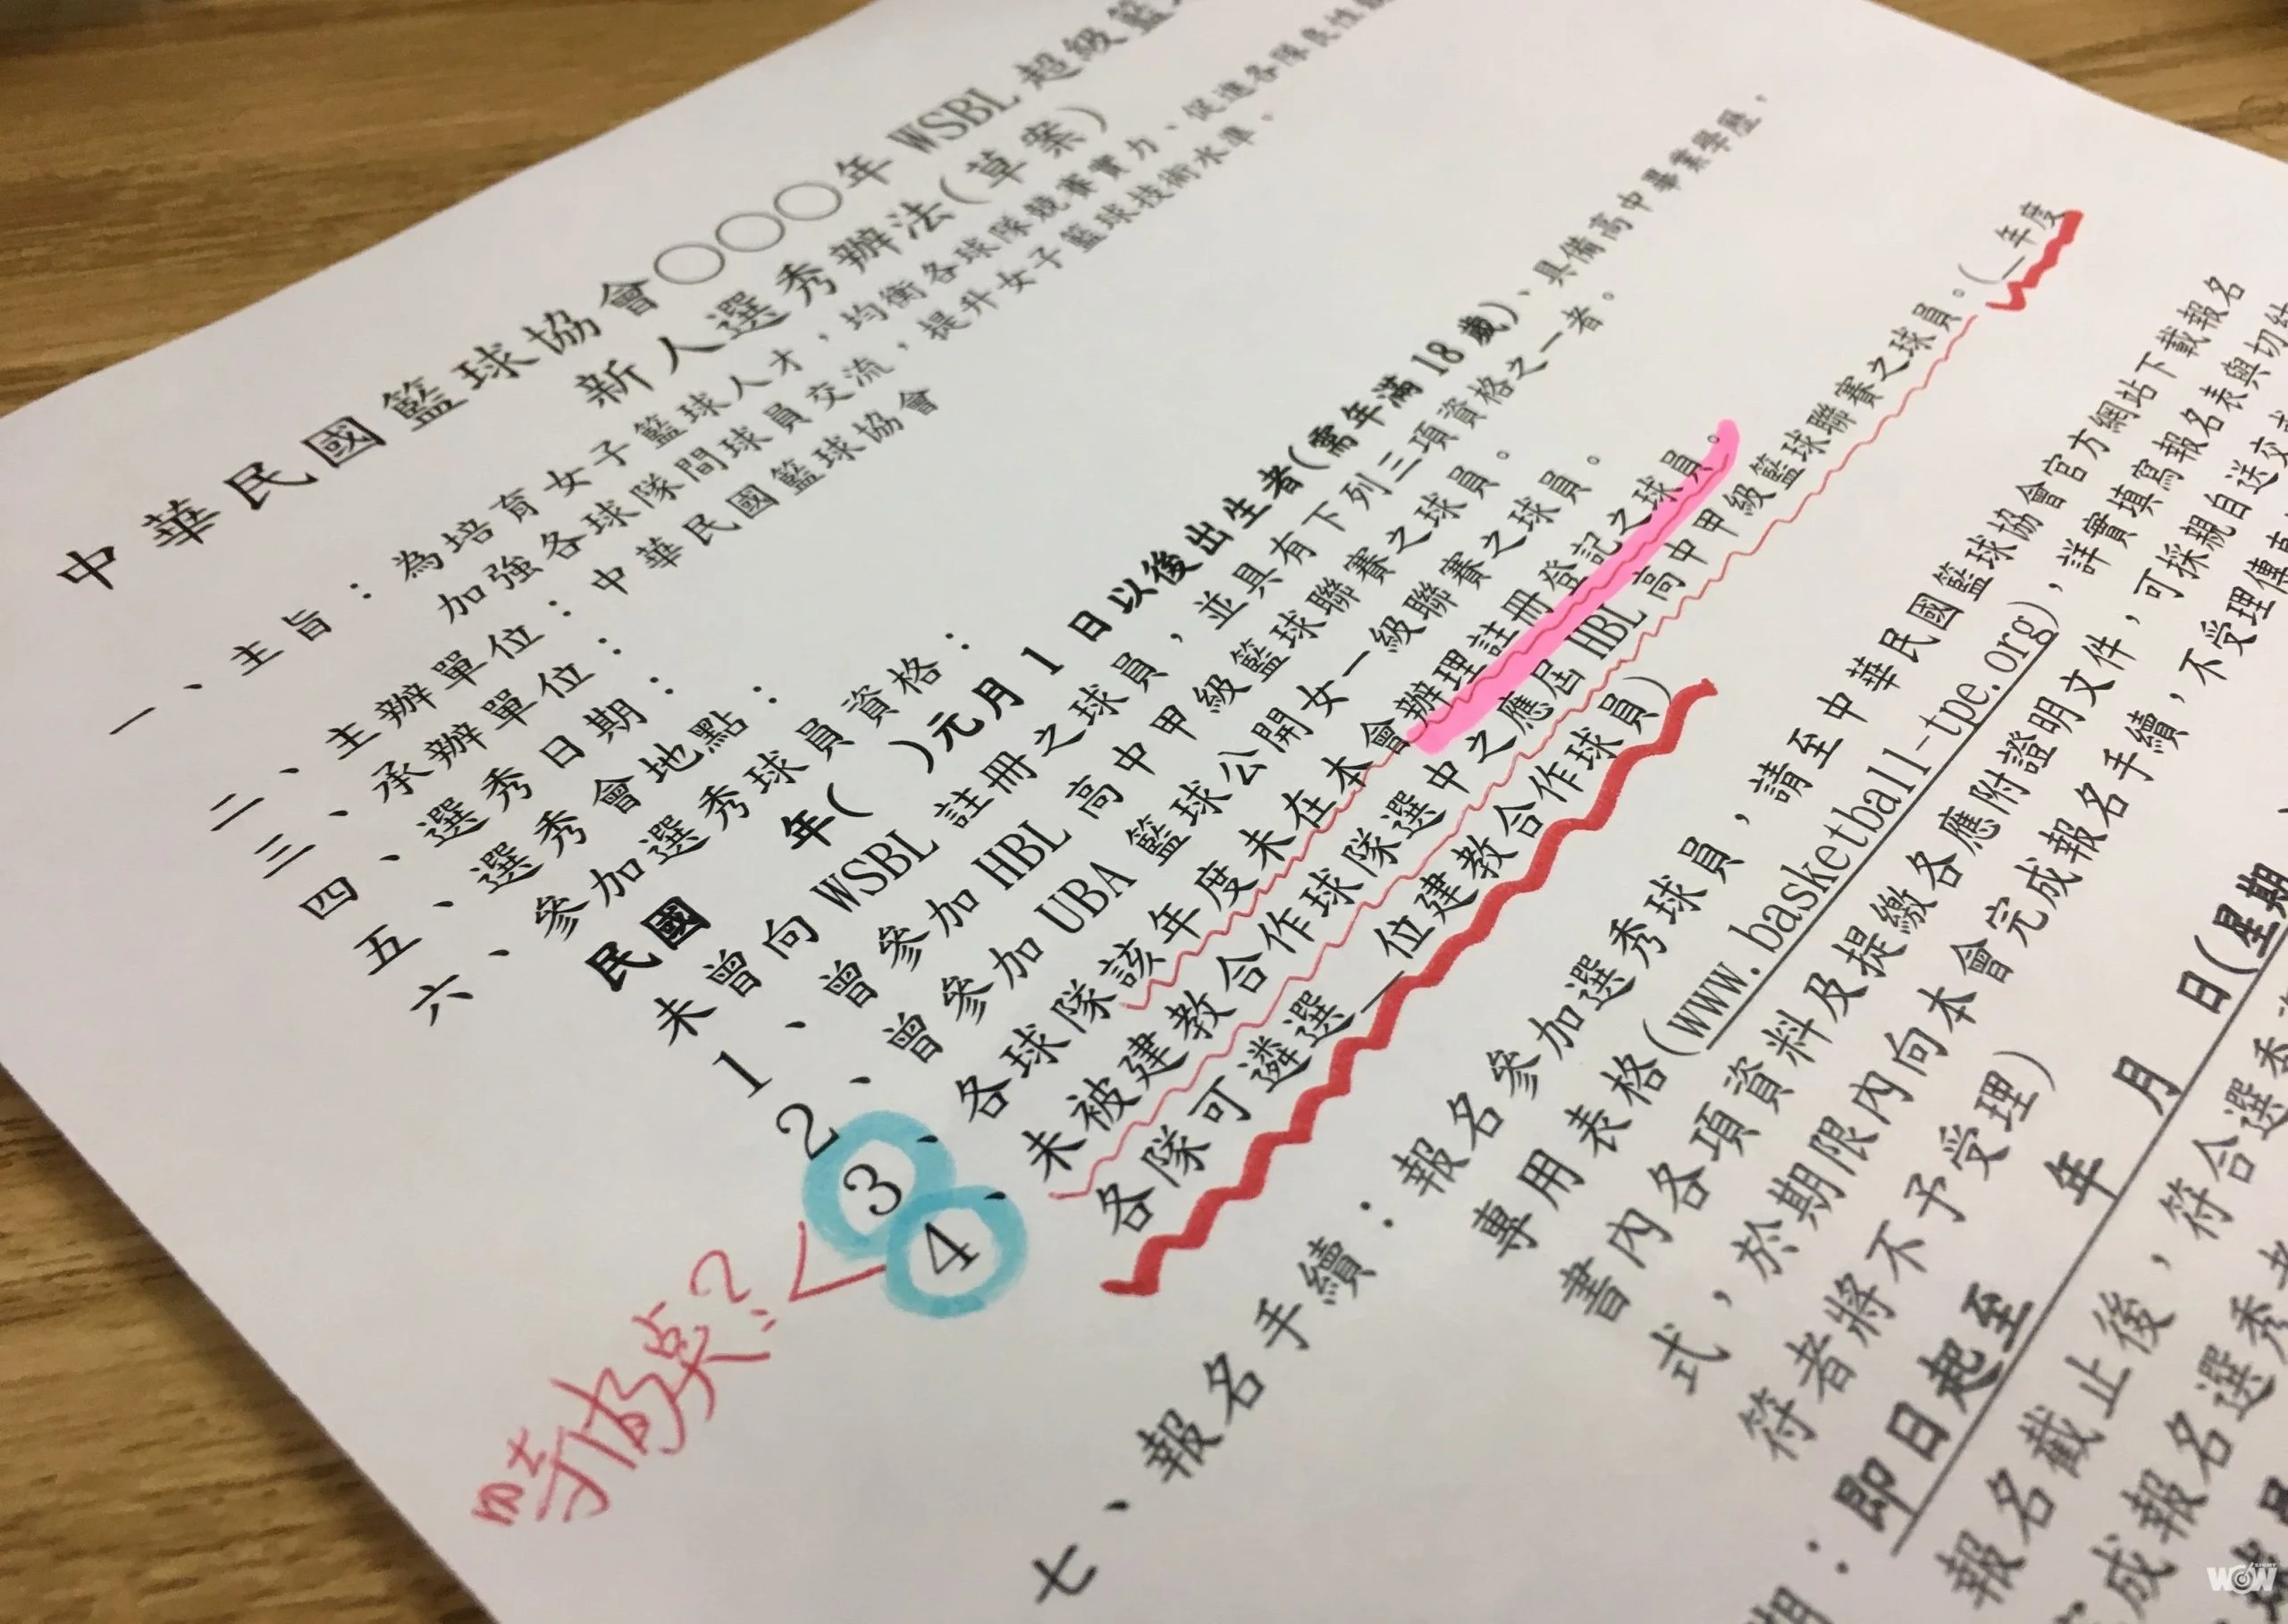 中華民國籃球協會○○○年 WSBL 超級籃
新人選秀辦法(草案)
一、主旨：為培育女子籃球人才，均衡各球隊競賽實力、促進各隊良性競
加強各球隊間球員交流，提升女子籃球技術水準。
二、主辦單位：中華民國籃球協會
三、承辦單位：
四、選秀日期：
五、選秀會地點：
六、參加選秀球員資格：
民國　　年(　　)元月 1 日以後出生者(需年滿 18 歲)、具備高中畢業學歷，
未曾向 WSBL 註冊之球員，並具有下列三項資格之一者。
1、曾參加 HBL 高中甲級籃球聯賽之球員。
2、曾參加 UBA 籃球公開女一級聯賽之球員。
3、各球隊該年度未在本會辦理註冊登記之球員。
4、未被建教合作球隊選中之應屆 HBL 高中甲級籃球聯賽之球員。(一年度
各隊可遴選一位建教合作球員)
時間點?
七、報名手續：報名參加選秀球員，請至中華民國籃球協會官方網站下載報名
專用表格(www.basketball-tpe.org)，詳實填寫報名表與切結
書內各項資料及提繳各應附證明文件，可採親自送交或
式，於期限內向本會完成報名手續，不受理傳真
符者將不予受理)
期：即日起至　　年　　月　　日(星期
報名截止後，符合選秀
完成報名選秀者
WOW